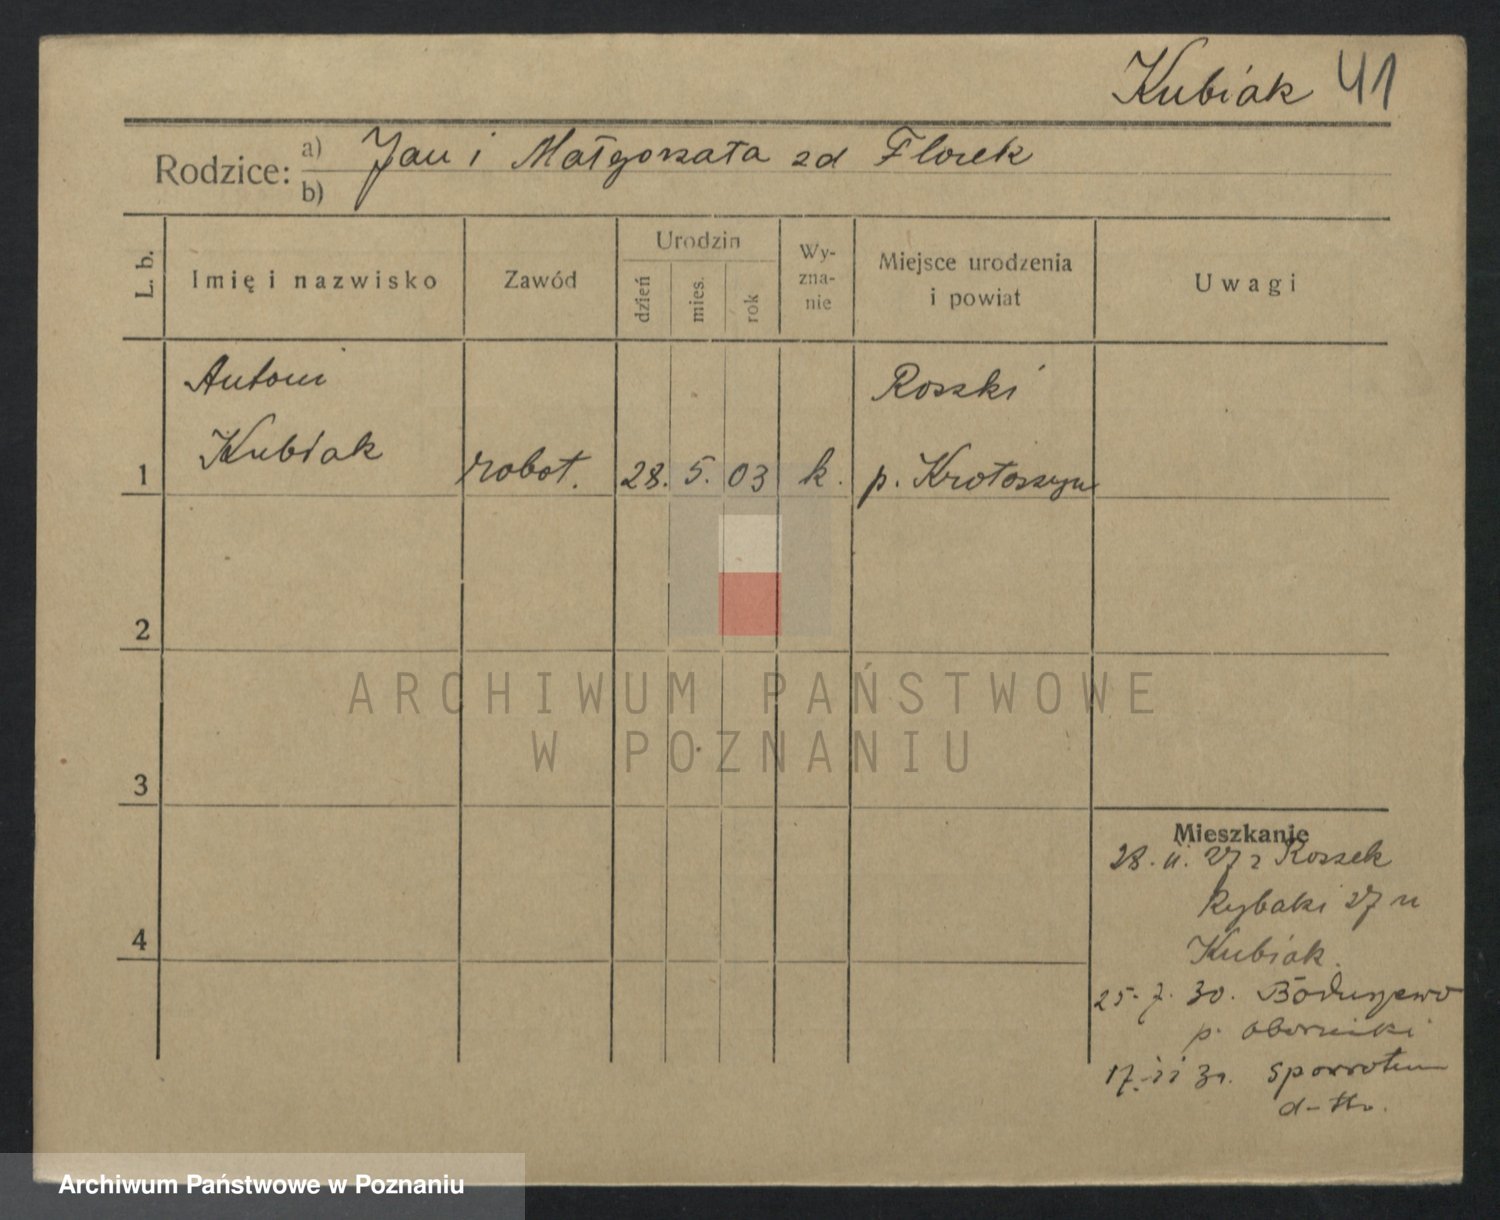 Kubiak 41
Rodzice: a) Jan i Małgorzata zd Florek
b)
L. b.
Imię i nazwisko
Zawód
Urodzin
dzień
mies.
rok
Wy-
zna-
nie
Miejsce urodzenia
i powiat
Uwagi
Antoni
Roszki
1 Kubiak robot. 28. 5. 03 k. p. Krotoszyn
2
ARCHIWUM PAŃSTWOWE
W POZNANIU
3
Mieszkanie
28. 11. 27 z Roszek
Rybaki 27 u
Kubiak.
4
25. 7. 30. Boduszewo
p. oborniki
17. 11 30. sporrotem
d-tto.
Archiwum Państwowe w Poznaniu